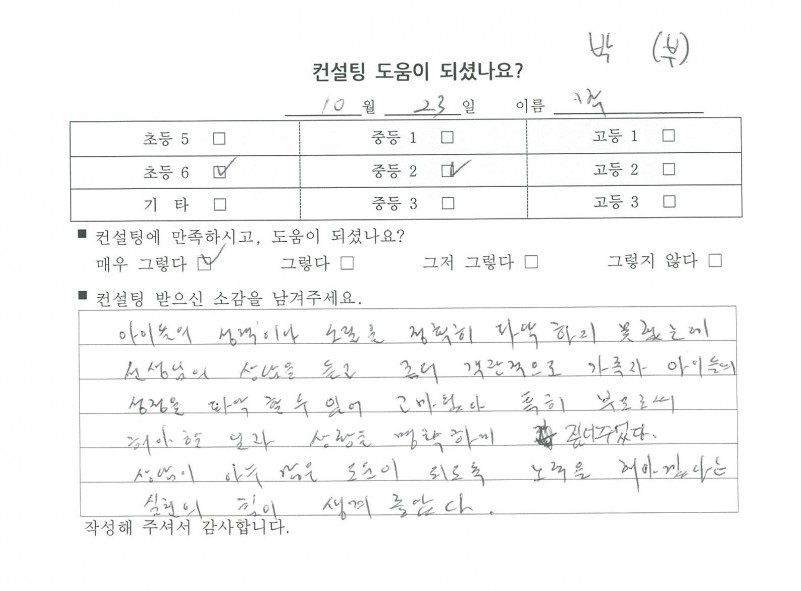 박 (부)
컨설팅 도움이 되셨나요?
10 월 23 일 이름
초등 5 □ 중등 1 □ 고등 1 □
초등 6 ☑ 중등 2 ☑ 고등 2 □
기 타 □ 중등 3 □ 고등 3 □
■ 컨설팅에 만족하시고, 도움이 되셨나요?
매우 그렇다 ☑ 그렇다 □ 그저 그렇다 □ 그렇지 않다 □
■ 컨설팅 받으신 소감을 남겨주세요.
아이들의 성격이나 정확히 파악 하지 못했는데
선생님의 상담을 듣고 좀더 객관적으로 가족과 아이들의
성정을 파악 할 수 있어 고마웠다 특히 부모로써
해야 할 일과 상황을 명확하게
상담이 아주 많은 도움이 되도록 노력을 해봐겠다는
실천의 힘이 생겨 좋았다.
작성해 주셔서 감사합니다.